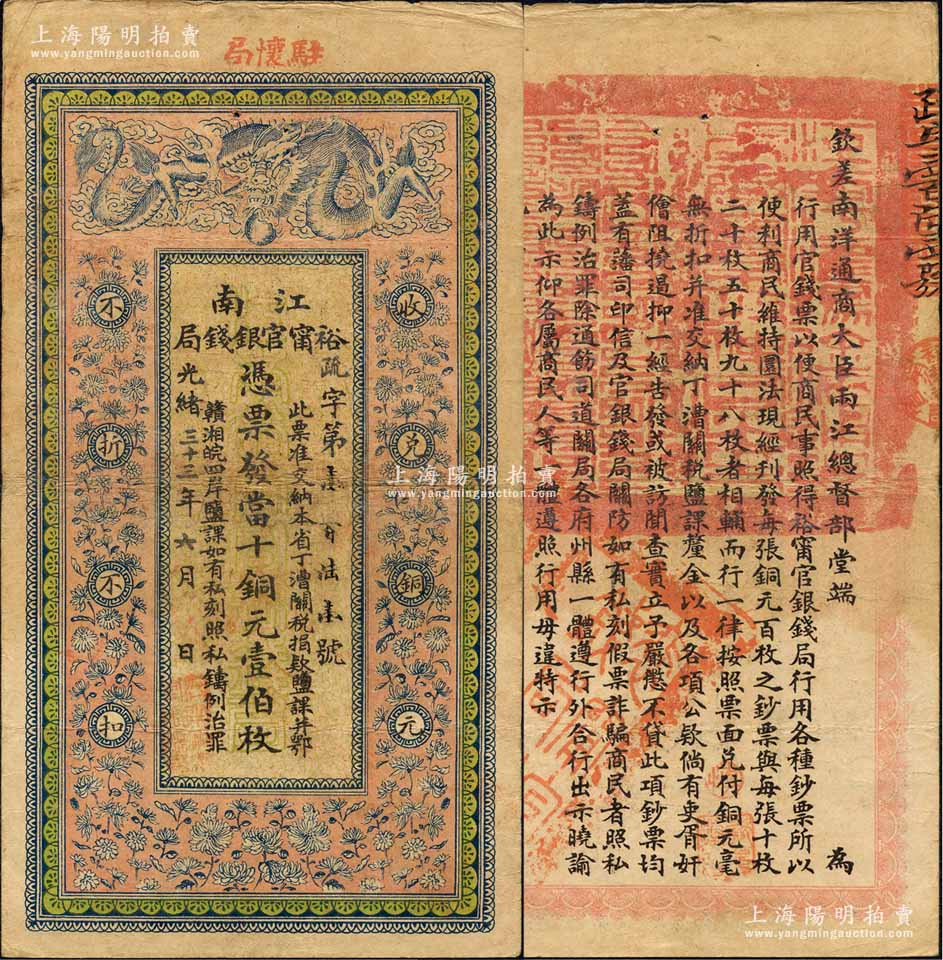 上海陽明拍賣
www.yangmingauction.com
駐懷局
江南
裕甯官銀錢局
收兌銅元
不折不扣
疏字第 陸 號
此票准交納本省丁漕關稅捐欵鹽課并鄂
憑票發當十銅元壹伯枚
贛湘皖四岸鹽課如有私刻照私鑄例治罪
光緒三十三年六月 日
上海陽明拍賣
www.yangmingauction.com
欽差南洋通商大臣兩江總督部堂端 為
行用官錢票以便商民事照得裕甯官銀錢局行用各種鈔票所以
便利商民維持圜法現經刊發每張銅元百枚之鈔票與每張十枚
二十枚五十枚九十八枚者相輔而行一律按照票面兌付銅元毫
無折扣并准交納丁漕關稅鹽課釐金以及各項公欵倘有吏胥奸
儈阻撓遏抑一經告發或被訪聞查實立予嚴懲不貸此項鈔票均
蓋有藩司印信及官銀錢局關防如有私刻假票詐騙商民者照私
鑄例治罪除通飭司道關局各府州縣一體遵行外合行出示曉諭
為此示仰各屬商民人等一 遵照行用毋違特示
上海陽明拍賣
www.yangmingauction.com